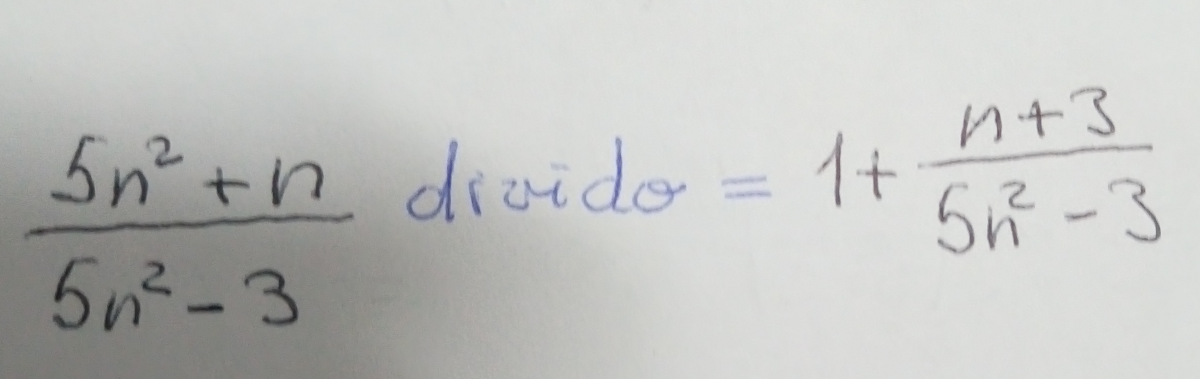 (5n² + n)/(5n² - 3) divido = 1 + (n + 3)/(5n² - 3)